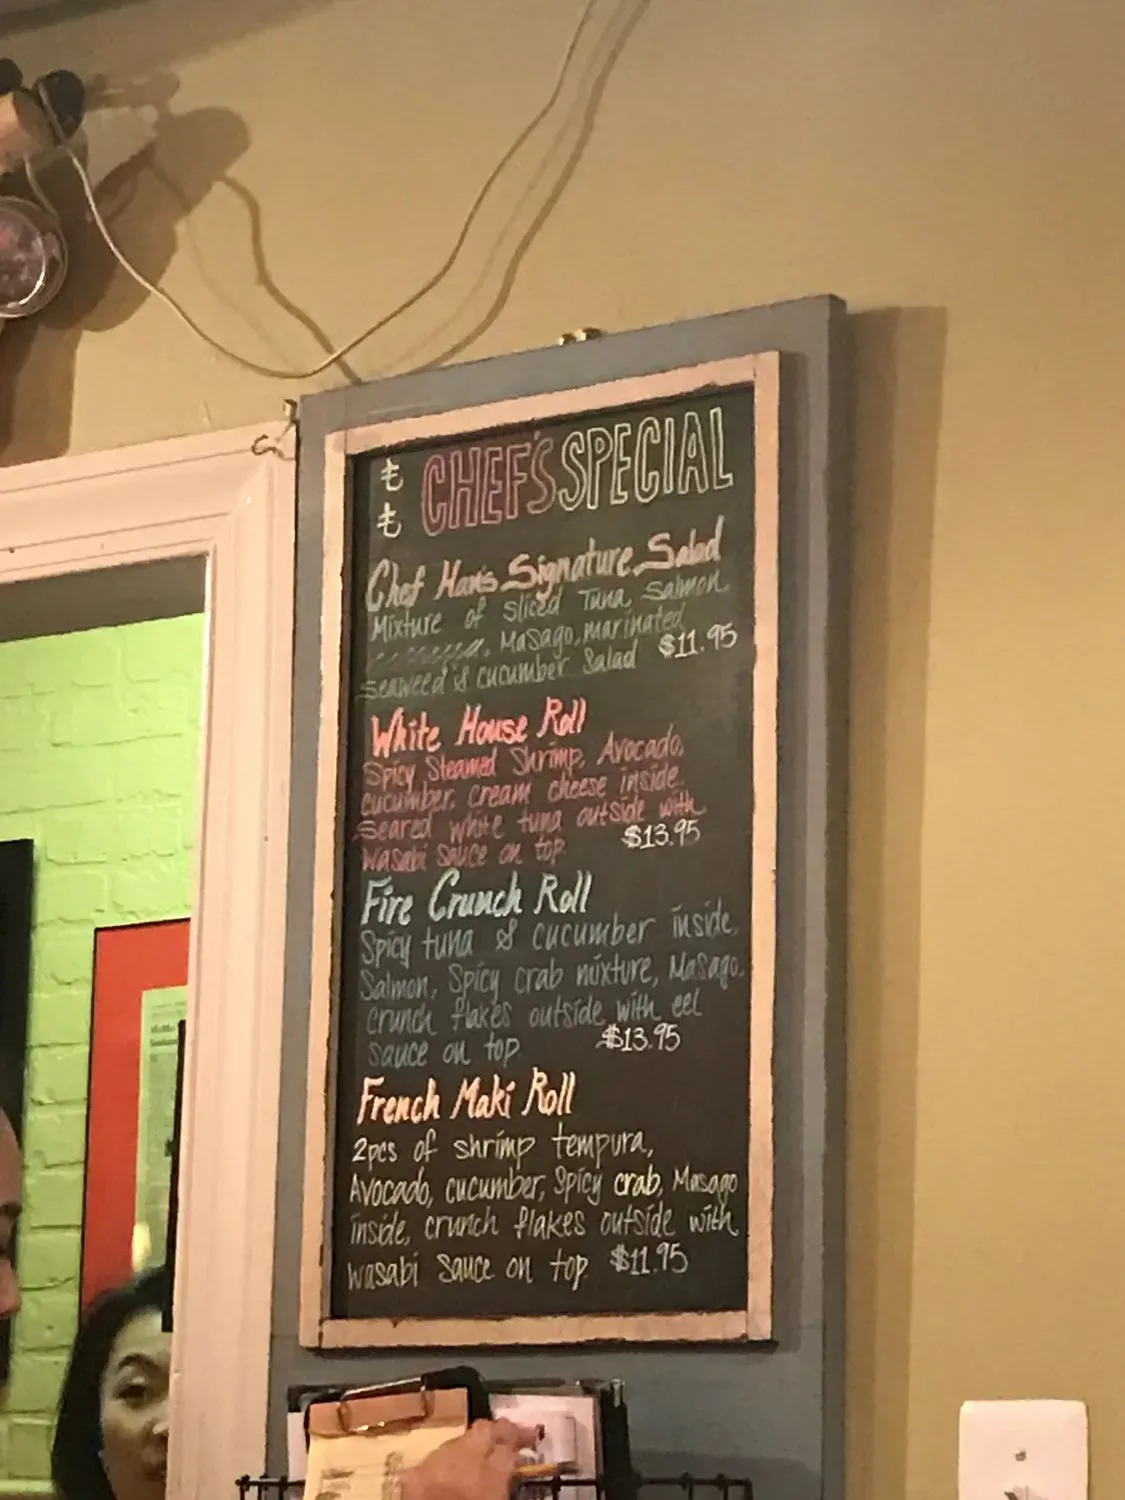 CHEF'S SPECIAL
Chef Han's Signature Salad
Mixture of sliced Tuna, Salmon,
, Masago, marinated
seaweed & cucumber Salad $11.95
White House Roll
Spicy Steamed Shrimp, Avocado,
cucumber, cream cheese inside.
Seared white tuna outside with
wasabi sauce on top $13.95
Fire Crunch Roll
Spicy tuna & cucumber inside,
Salmon, Spicy crab mixture, Masago,
crunch flakes outside with eel
sauce on top $13.95
French Maki Roll
2pcs of shrimp tempura,
Avocado, cucumber, Spicy crab, Masago
inside, crunch flakes outside with
wasabi sauce on top $11.95